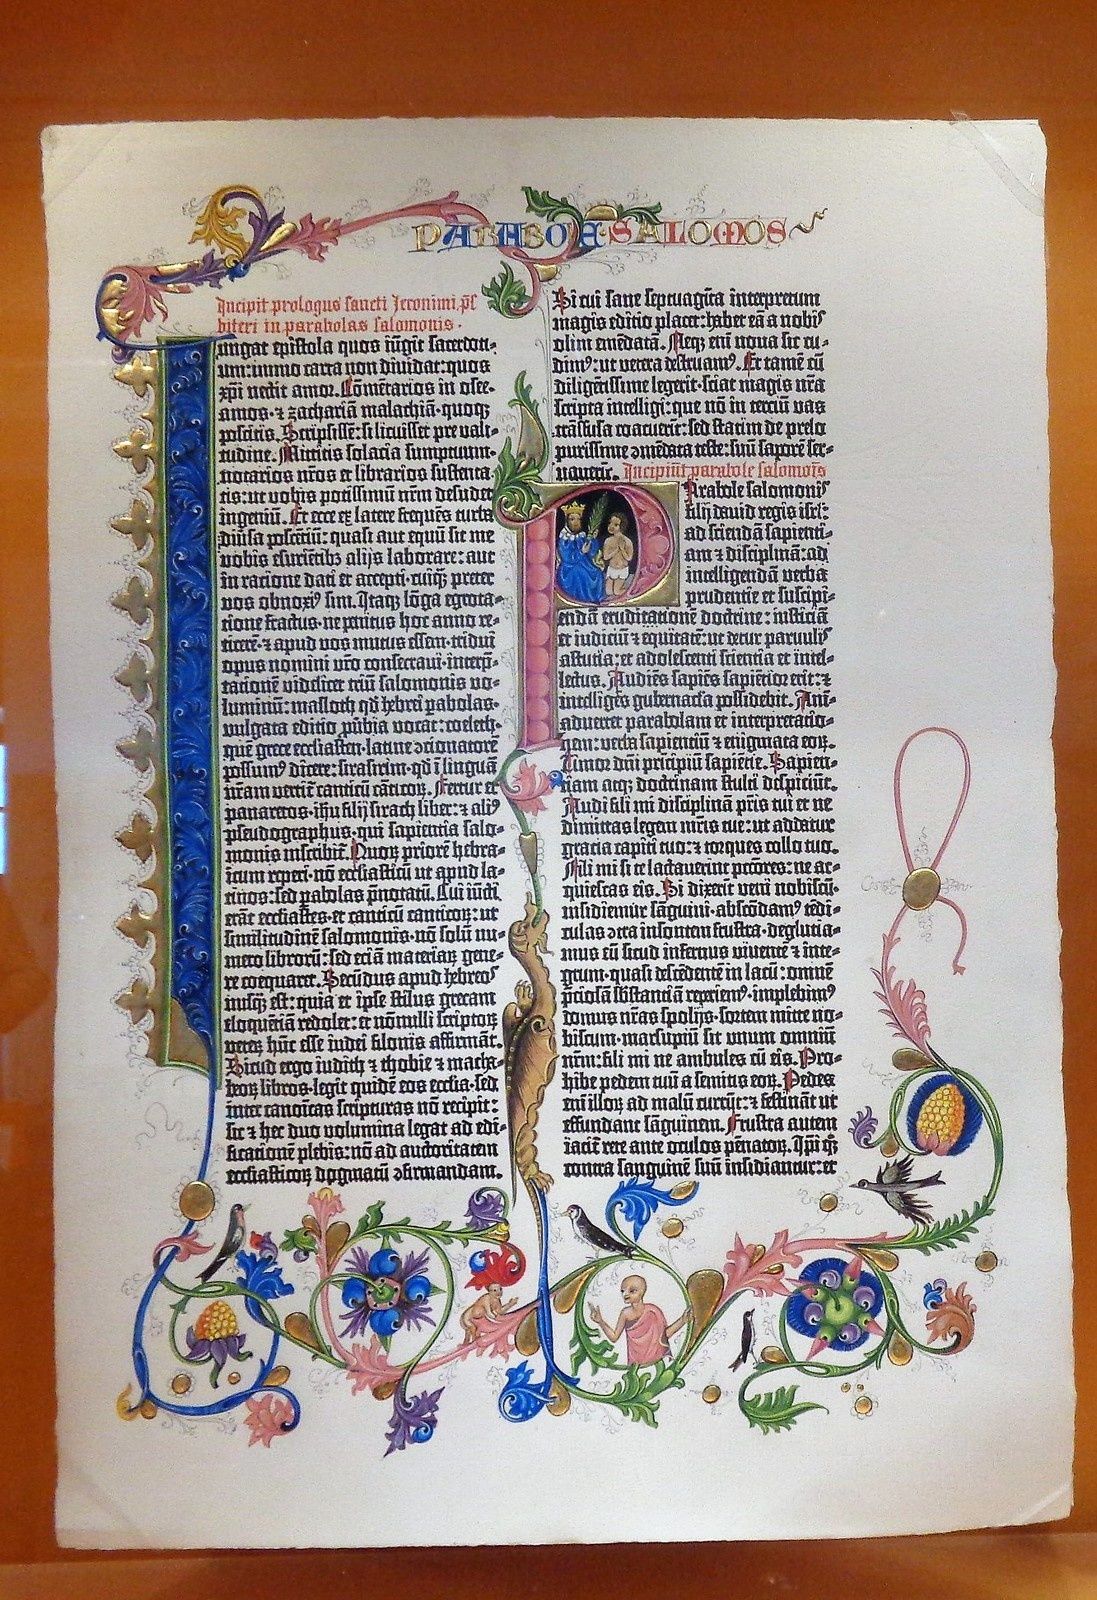 PARABOLE·SALOMOIS
Incipit prologus sancti Jeronimi p̄s
biteri in parabolas salomonis.
Iungat epistola quos iūgit sacerdoti-
um: immo carta non diuidat: quos
xp̄i nectit amor. Cōmētarios in osee-
amos· ⁊ zachariā malachiā· quoqꝫ
poscitis. Scripsissē: si licuisset pre vali-
tudine. Mittitis solacia sumptuum·
notarios nr̄os et librarios sustenta-
tis: ut vobis potissimū nr̄m desudet
ingeniū. Et ecce ex latere frequēs turba
diūsa poscētiū: quasi aut equū sit me
vobis esurietibꝫ alijs laborare: aut
in racione dati et accepti· cuiqꝫ preter
vos obnoxiꝰ sim. Itaqꝫ lōga egrota-
tione fractus· ne penitus hoc anno re-
ticerē· ⁊ apud vos mutus essem· tridui
opus nomini vr̄o consecraui· interp̄-
tationē videlicet triū salomonis vo-
luminū: masloth qd̄ hebrei pabolas·
vulgata editio pūbia vocat: coeleth·
quē grece ecclīasten· latine ↄcionatorē
possumꝰ dicere: sirasirim· qd̄ ī linguā
nr̄am vertit̄ canticū cāticoꝝ. Fertur et
panaretos· ih̄u filij sirach liber: ⁊ aliꝰ
pseudographus· qui sapientia salo-
monis inscribit̄. Quoꝝ priorē hebra-
icum reperi· nō ecclīasticū ut apud la-
tinos: sed pabolas p̄notatū. Cui iūcti
erāt ecclīastes· et canticū canticoꝝ: ut
similitudinē salomonis· nō solū nu-
mero librorū: sed eciā materiaꝝ gene-
re coequaret. Secūdus apud hebreos
nusqꝫ est: quia et ipse stilus grecam
eloquētiā redolet: et nōnulli scriptoꝝ
veteꝝ hūc esse iudei filonis affirmāt.
Sicud ergo iudith ⁊ thobie ⁊ macha-
beoꝝ libros· legit quidē eos eccl̄ia· sed
inter canoīcas scripturas nō recipit:
sic ⁊ hec duo volumina legat ad edi-
ficationē plebis: nō ad auctoritatem
ecclīasticoꝝ dogmatū ↄfirmandam.
Si cui sane septuagīta interpretum
magis editio placet: habet eā a nobis
olim emēdatā. Neqꝫ enī noua sic cu-
dimꝰ: ut vetera destruamꝰ. Et tamē cū
diligētissime legerit· sciat magis nr̄a
scripta intelligi: que nō in terciū vas
trāsfusa coacuerit: sed statim de prelo
purissime ↄmēdata teste: suū saporē ser-
uauerit̄. Incipiūt parabole salomōis
PArabole salomonis
filij dauid regis isr̄l:
ad sciendā sapienti-
am ⁊ disciplinā: ad
intelligendā verba
prudentie et suscipi-
endā eruditationē doctrine: iusticiā
et iudiciū ⁊ equitatē: ut detur paruulis
astutia: et adolescenti scientia et intel-
lectus. Audiēs sapiēs sapiētior erit: ⁊
intelligēs gubernacla possidebit. Ani-
aduertet parabolam et interpretatio-
nem: verba sapientiū ⁊ enigmata eoꝝ.
Timor dn̄i pricipiū sapiētie. Sapien-
tiam atqꝫ doctrinam stulti despiciūt.
Audi fili mi disciplinā pr̄is tui et ne
dimittas legem mr̄is tue: ut addatur
gracia capiti tuo: ⁊ torques collo tuo.
Fili mi si te lactauerint pctōres: ne ac-
quiescas eis. Si dixerit veni nobiscū·
insidiemur sāguini· abscōdamꝰ tēdi-
culas ↄtra insontem frustra· deglutia-
mus eū sicud infernus viuentē ⁊ inte-
grum· quasi descēdentē in lacū: omnē
p̄ciosā sb̄stanciā repriemꝰ· implebimꝰ
domus nr̄as spolijs· sortem mitte no-
biscum· marsupiū sit vnum omniū
nr̄m: fili mi ne ambules cū eis. Pro-
hibe pedem tuū a semitis eoꝝ. Pedes
enī illoꝝ ad malū currūt: ⁊ festināt ut
effundant sāguinem. Frustra autem
iacit̄ rete ante oculos pēnatoꝝ. Ip̄i qꝫ
contra sanguinē suū insidiantur: et